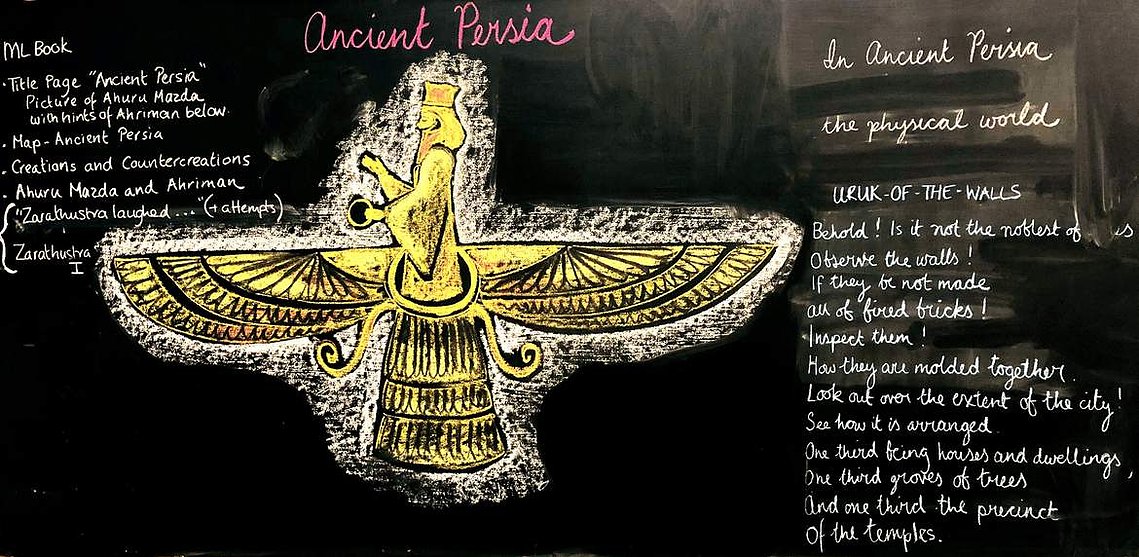 Ancient Persia
ML Book
· Title Page "Ancient Persia"
Picture of Ahuru Mazda
with hints of Ahriman below.
· Map - Ancient Persia
· Creations and Countercreations
· Ahuru Mazda and Ahriman
"Zarathustra laughed ..." (+ attempts)
Zarathustra
I
In Ancient Persia
the physical world
URUK-OF-THE-WALLS
Behold! Is it not the noblest of
Observe the walls!
If they be not made
all of fired bricks!
Inspect them!
How they are molded together.
Look out over the extent of the city!
See how it is arranged.
One third being houses and dwellings,
One third groves of trees
And one third the precinct
Of the temples.